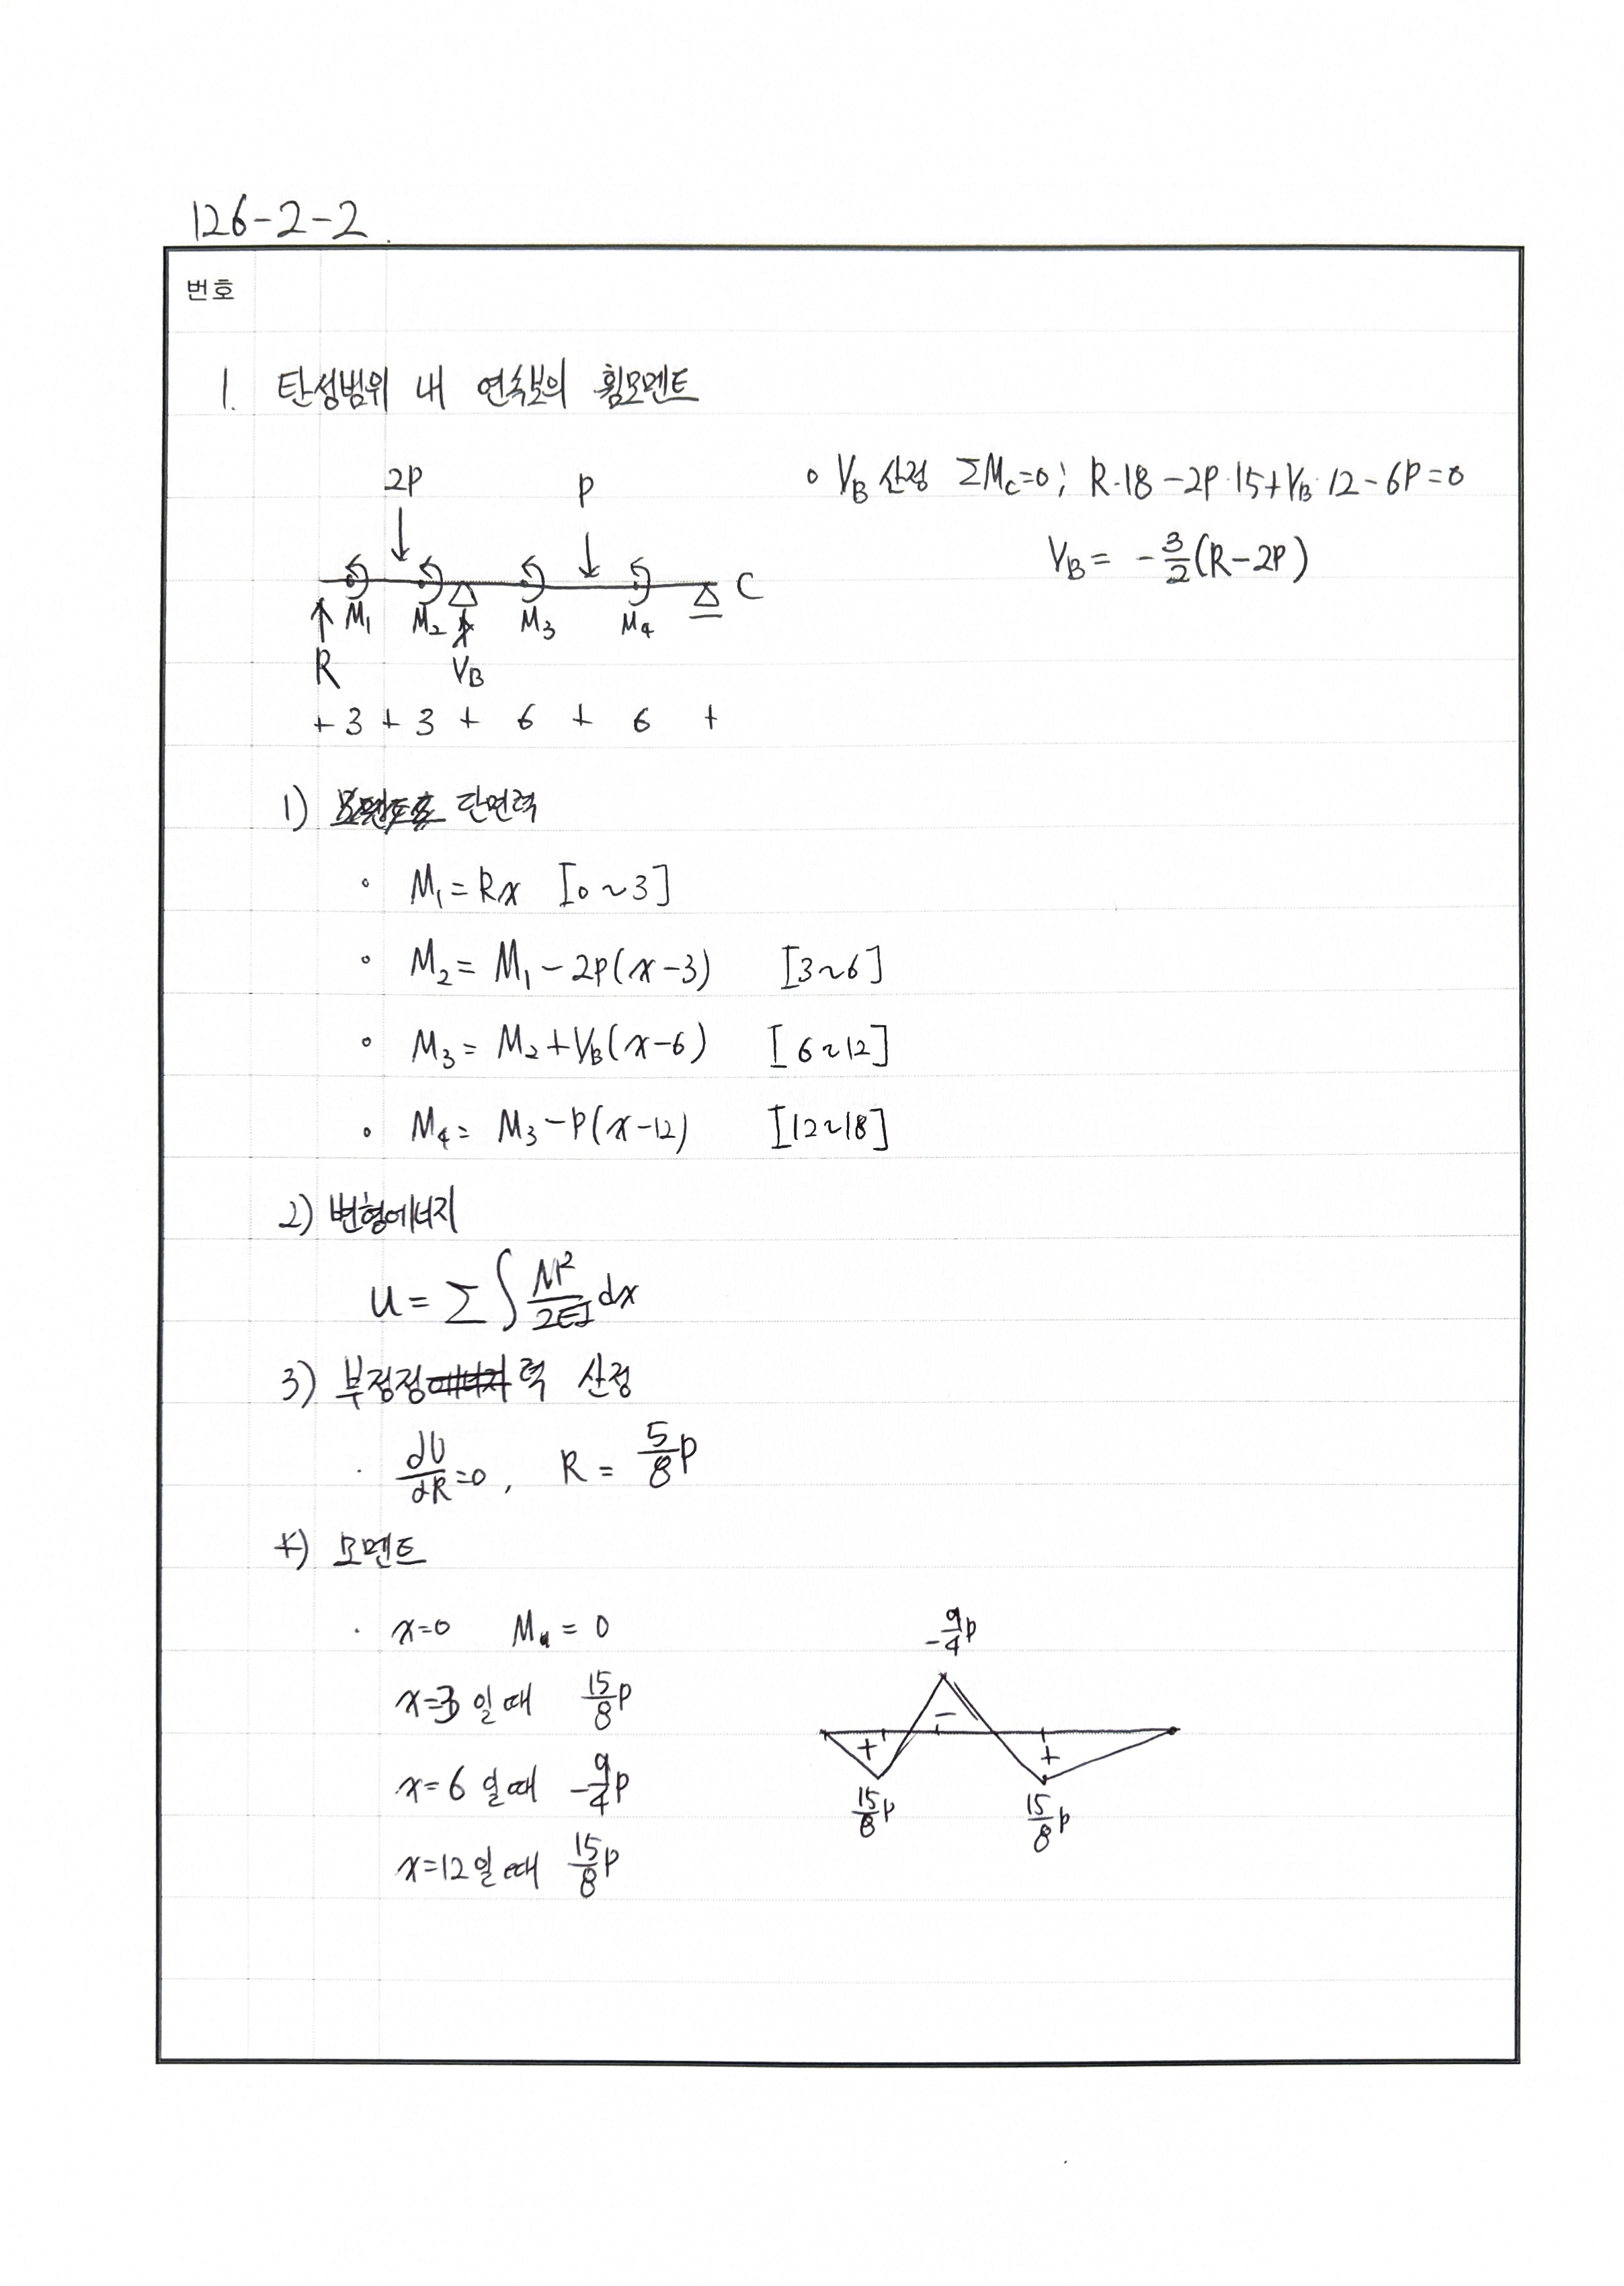 126-2-2
번호
1. 탄성범위 내 연속보의 휨모멘트
2P P
M1 M2 M3 M4 C
R VB
+ 3 + 3 + 6 + 6 +
∘ VB 산정 ΣMc=0; R·18-2P·15+VB·12-6P=0
VB = -3/2(R-2P)
1) 단면력
∘ M1 = Rx [0~3]
∘ M2 = M1 - 2P(x-3) [3~6]
∘ M3 = M2 + VB(x-6) [6~12]
∘ M4 = M3 - P(x-12) [12~18]
2) 변형에너지
U = Σ∫ M²/2EI dx
3) 부정정력 산정
· dU/dR = 0, R = 5/8 P
4) 모멘트
· x=0 Ma = 0
x=3 일 때 15/8 P
x=6 일 때 -9/4 P
x=12 일 때 15/8 P
-9/4 P
+ - +
15/8 P 15/8 P